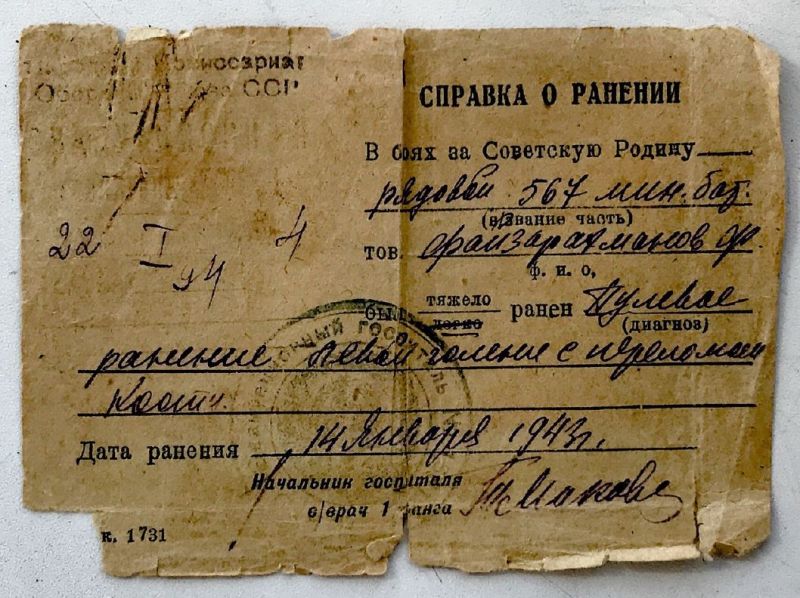 СПРАВКА О РАНЕНИИ
В боях за Советскую Родину
рядовой 567 мин. бат.
(в/звание часть)
тов. Файзарахманов Ф.
ф. и о,
тяжело
был легко ранен Пулевое
(диагноз)
ранение левой голени с переломом
кости.
Дата ранения 14 Января 1943 г.
Начальник госпиталя
в/врач 1 ранга
22 I
4
к. 1731
госпиталь